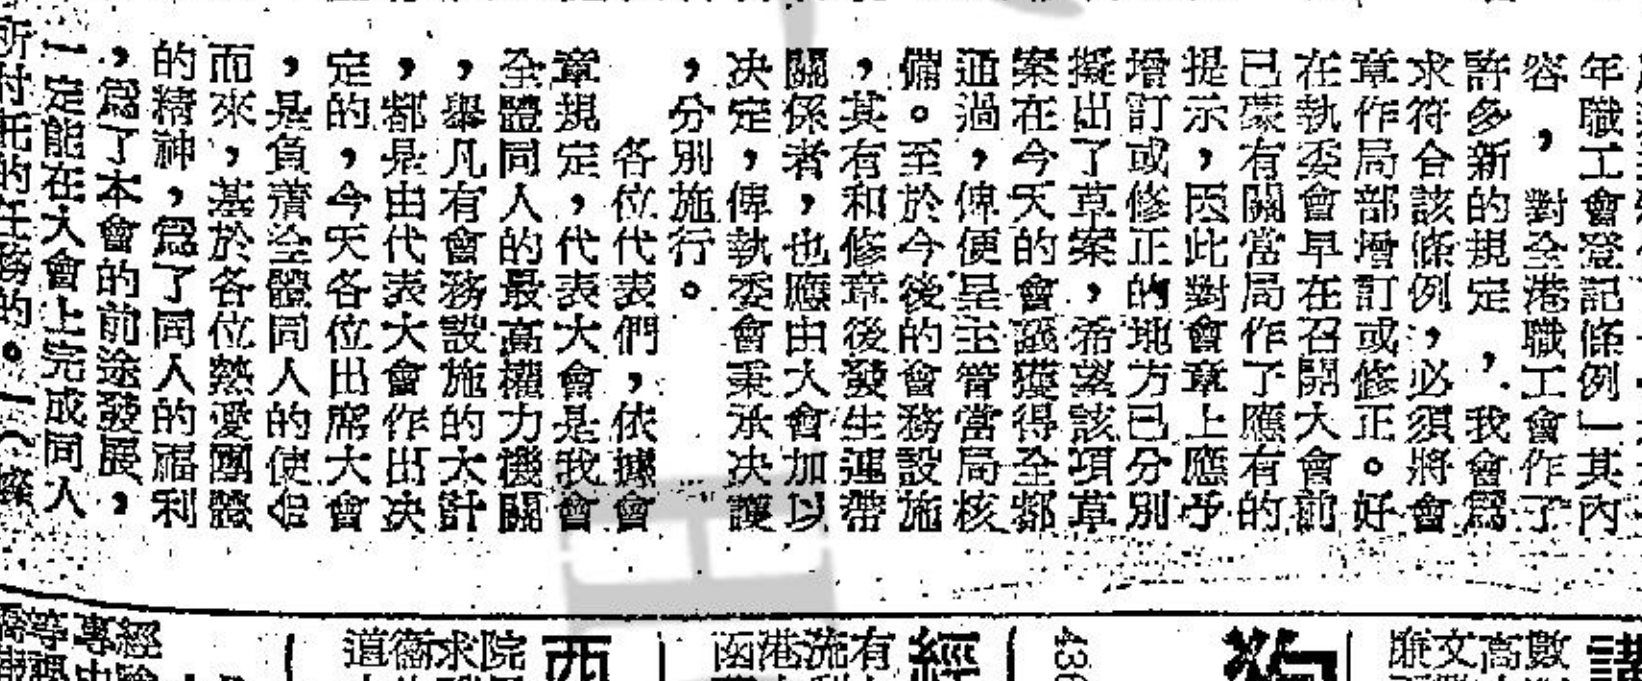 年職工會登記條例」其內
容，對全港職工會作了
許多新的規定，我會爲
求符合該條例，必須將會
章作局部增訂或修正。好
在執委會早在召開大會前
已蒙有關當局作了應有的
提示，因此對會章上應予
增訂或修正的地方已分別
擬出了草案，希望該項草
案在今天的會議獲得全部
通過，俾便呈主管當局核
備。至於今後的會務設施
，其有和修章後發生連帶
關係者，也應由大會加以
決定，俾執委會秉承決議
，分別施行。
各位代表們，依據會
章規定，代表大會是我會
全體同人的最高權力機關
，舉凡有會務設施的大計
，都是由代表大會作出決
定的，今天各位出席大會
，是負着全體同人的使
而來，基於各位熱愛團體
的精神，爲了同人的福利
，爲了本會的前途發展，
一定能在大會上完成同人
所付託的任務的。
數
高
文
廉
436
經
有
流
港
函
西
院
求
衞
道
經
專
等